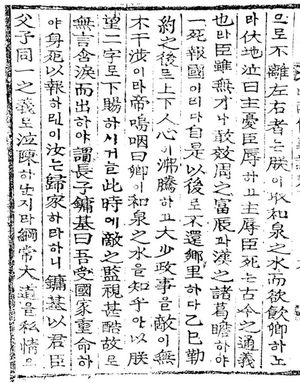 으로不離左右者는朕이取和泉之水而欲飮卿하노
라伏地泣曰主憂臣辱하고主辱臣死는古今之通義
也라臣雖無才나敢效周之富辰과漢之諸葛瞻하야
一死報國이리다自是以後로不還鄕里하다乙巳勒
約之後로上下人心이沸騰하고大少政事를敵이無
不干涉이라帝嗚咽曰卿이和泉之水을知乎아以朕
望二字로下賜하시거늘此時에敵之監視甚酷故로
無言含淚而出하야謂長子鏞基曰吾受國家重命하
야身死以報하린이汝는歸家하라하니鏞基以君臣
父子同一之義로泣陳하난지라綱常大道을私情으